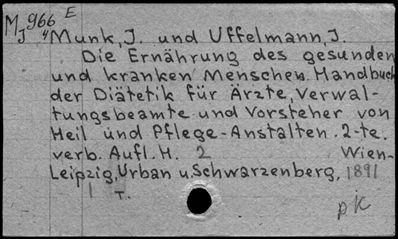 M 966 E
J 4 Munk, J. und Uffelmann, J.
Die Ernährung des gesunden
und kranken Menschen. Handbuch
der Diätetik für Ärzte, Verwal-
tungsbeamte und Vorsteher von
Heil und Pflege-Anstalten. 2-te.
verb. Aufl. H. 2 Wien-
Leipzig, Urban u. Schwarzenberg, 1891
1 T.
pK